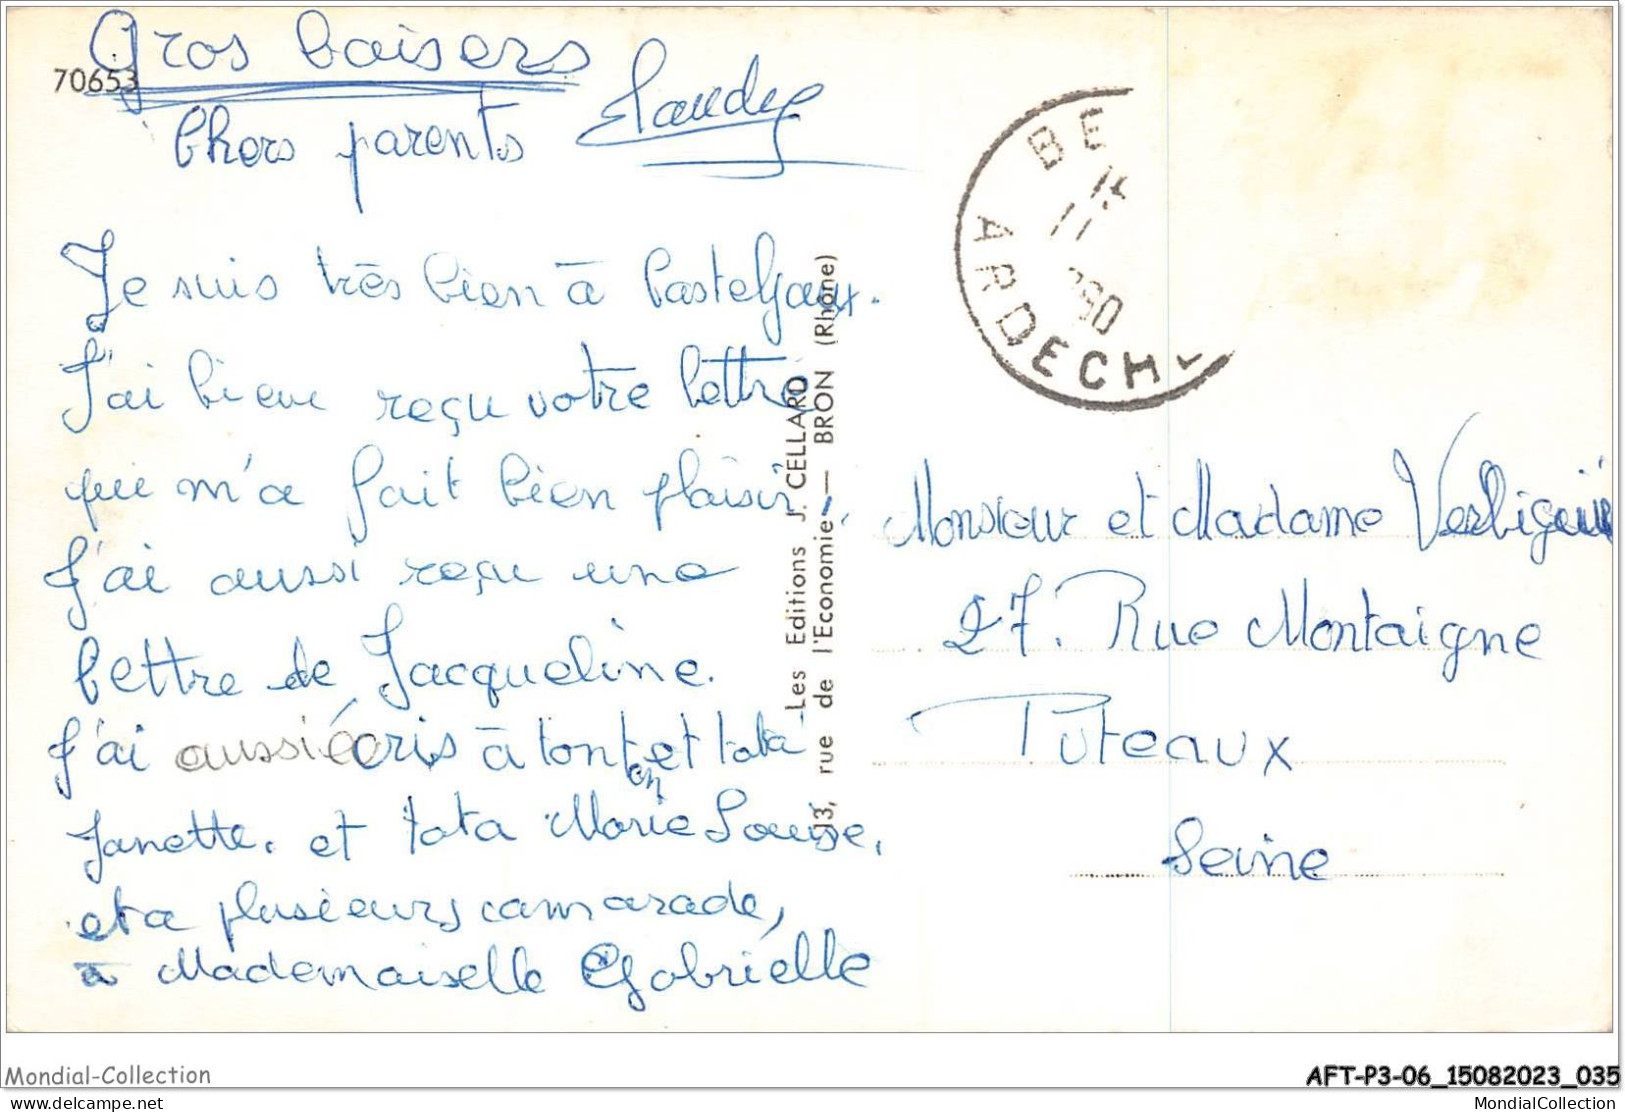 Gros baisers
70653
Chers parents Claudy
Je suis très bien à Casteljaux.
J'ai bien reçu votre lettre
qui m'a fait bien plaisir,
J'ai aussi reçu une
lettre de Jacqueline.
J'ai aussi écris à tonton et tata
Janette. et tata Marie Louise,
et a plusieurs camarade,
à Mademaiselle Gabrielle
Les Editions J. CELLARD
13, rue de l'Economie — BRON (Rhône)
BE
ARDECHE
Monsieur et Madame
27. Rue Montaigne
Puteaux
Seine
Mondial-Collection
AFT-P3-06_15082023_035
delcampe.net
MondialCollection